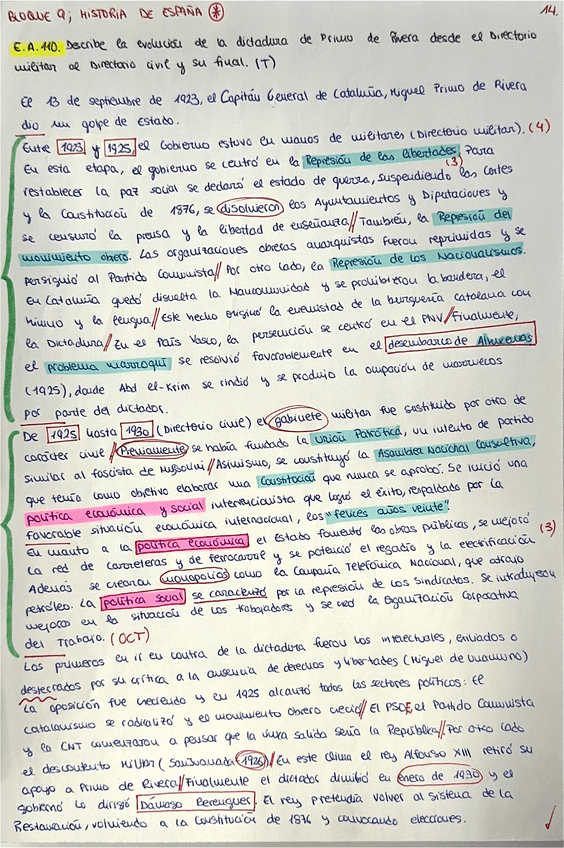 BLOQUE 9; HISTORIA DE ESPAÑA * 14.
E.A. 110. Describe la evolución de la dictadura de Primo de Rivera desde el Directorio
militar al Directorio civil y su final. (T)
El 13 de septiembre de 1923, el Capitán General de Cataluña, Miguel Primo de Rivera
dio un golpe de Estado.
Entre 1923 y 1925, el Gobierno estuvo en manos de militares (Directorio militar). (4)
En esta etapa, el gobierno se centró en la Represión de las libertades. Para
(3)
restablecer la paz social se declaró el estado de guerra, suspendiendo las Cortes
y la Constitución de 1876, se disolvieron los Ayuntamientos y Diputaciones y
se censuró la prensa y la libertad de enseñanza // También, la Represión del
movimiento obrero. Las organizaciones obreras anarquistas fueron reprimidas y se
persiguió al Partido Comunista // Por otro lado, la Represión de los Nacionalismos.
En Cataluña quedó disuelta la Mancomunidad y se prohibieron la bandera, el
himno y la lengua // Este hecho originó la enemistad de la burguesía catalana con
la Dictadura // En el País Vasco, la persecución se centró en el PNV // Finalmente,
el problema marroquí se resolvió favorablemente en el desembarco de Alhucemas
(1925), donde Abd el-Krim se rindió y se produjo la ocupación de marruecos
por parte del dictador.
De 1925 hasta 1930 (Directorio civil) el gabinete militar fue sustituido por otro de
carácter civil // Previamente se había fundado la Unión Patriótica, un intento de partido
similar al fascista de Mussolini // Asimismo, se constituyó la Asamblea Nacional Consultiva,
que tenía como objetivo elaborar una Constitución que nunca se aprobó. Se inició una
política económica y social intervencionista que logró el éxito, respaldado por la
favorable situación económica internacional, los "felices años veinte".
En cuanto a la política económica, el Estado fomentó las obras públicas, se mejoró (3)
la red de carreteras y de ferrocarril y se potenció el regadío y la electrificación
Además se crearon monopolios como la Compañía Telefónica Nacional, que atrajo
petróleo. La política social se caracterizó por la represión de los Sindicatos. Se introdujeron
mejoras en la situación de los trabajadores y se creó la Organización Corporativa
del Trabajo. (OCT)
Los primeros en ir en contra de la dictadura fueron los intelectuales, exiliados o
desterrados por su crítica a la ausencia de derechos y libertades (Miguel de Unamuno)
La oposición fue creciendo y en 1925 alcanzó todos los sectores políticos: El
catalanismo se radicalizó y el movimiento obrero creció // El PSOE, el Partido Comunista
y la CNT comenzaron a pensar que la única salida sería la República // Por otro lado
el descontento militar (Sanjuanada 1926) // En este clima el rey Alfonso XIII retiró su
apoyo a Primo de Rivera // Finalmente el dictador dimitió en enero de 1930 y el
gobierno lo dirigió Dámaso Berenguer. El rey pretendía volver al sistema de la
Restauración, volviendo a la Constitución de 1876 y convocando elecciones.